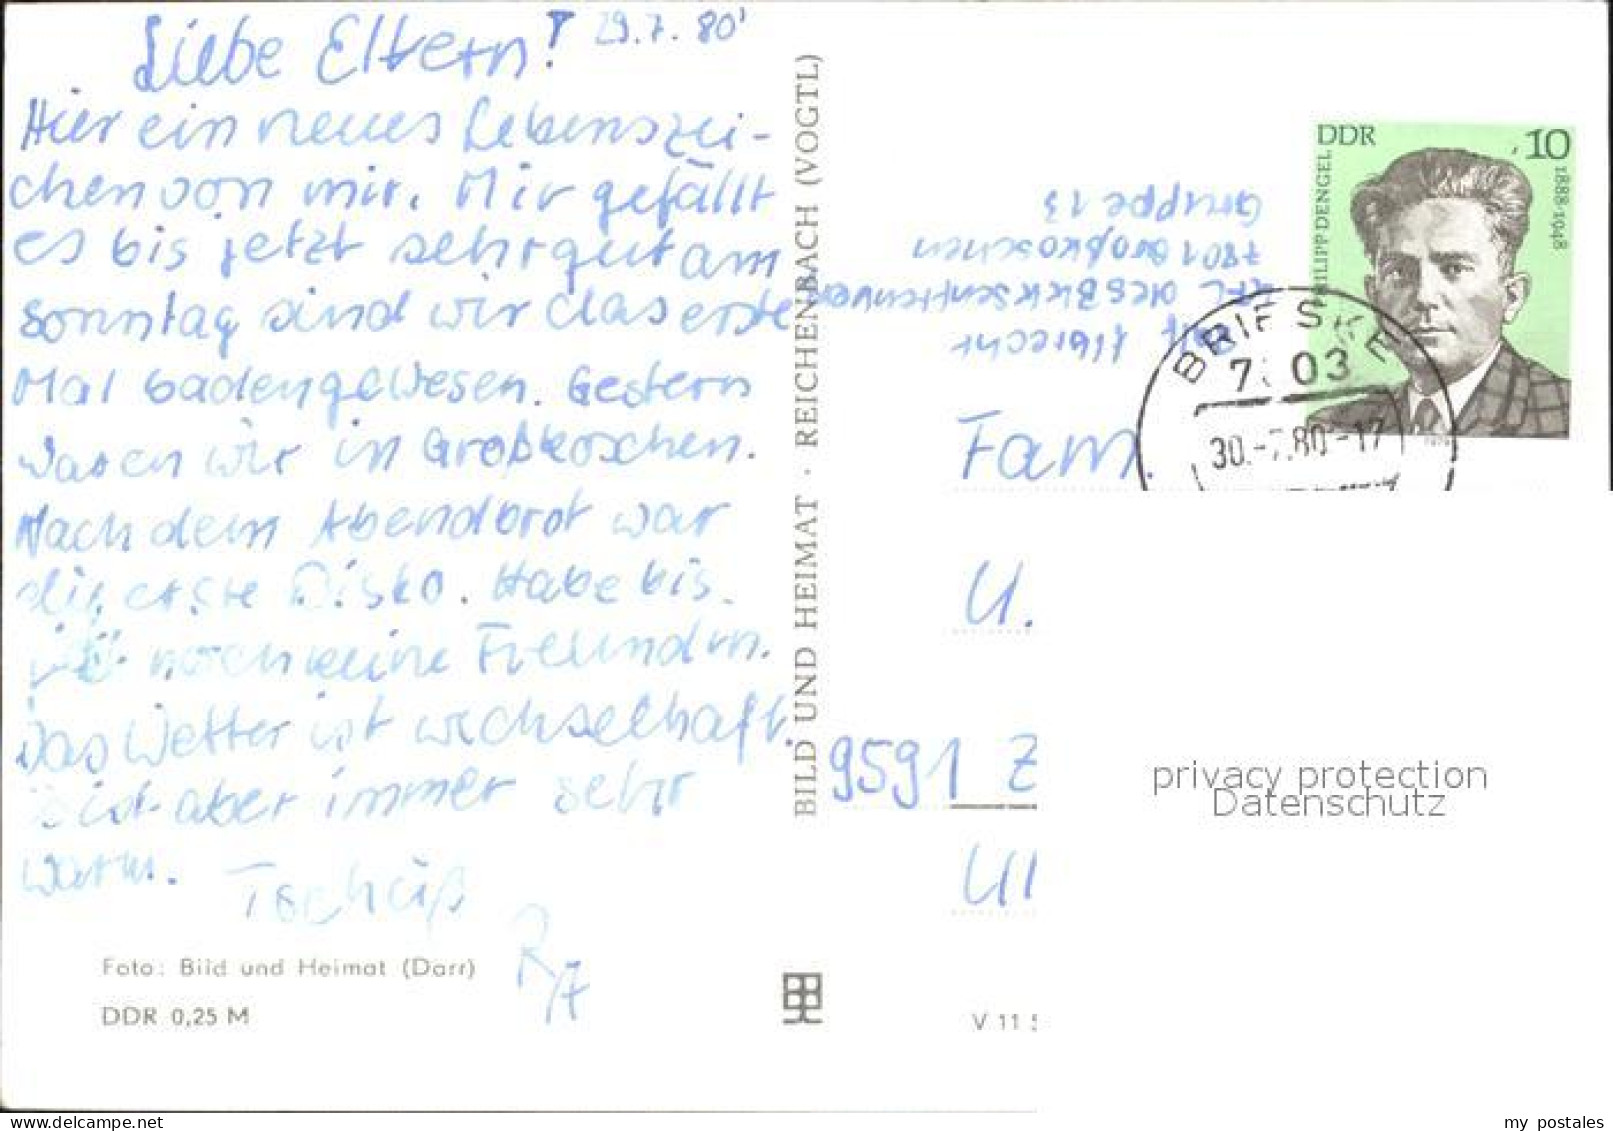 Liebe Eltern! 29.7.80'
Hier ein neues Lebenszei-
chen von mir. Mir gefällt
es bis jetzt sehr gut am
Sonntag sind wir das erste
Mal baden gewesen. Gestern
waren wir in Großkoschen.
Nach dem Abendbrot war
die erste Disko. Habe bis.
noch keine Freundin.
Das Wetter ist wechselhaft.
ist aber immer sehr
warm. Tschüß
Foto: Bild und Heimat (Darr)
DDR 0,25 M
BILD UND HEIMAT · REICHENBACH (VOGTL)
Albrecht
7801 Großkoschen
Gruppe 13
DDR 10
PHILIPP DENGEL 1888-1948
BRIESKE
7 03
30.-7.80-17
Fam.
U.
9591 Z
V 11
privacy protection
Datenschutz
delcampe.net
my_postales